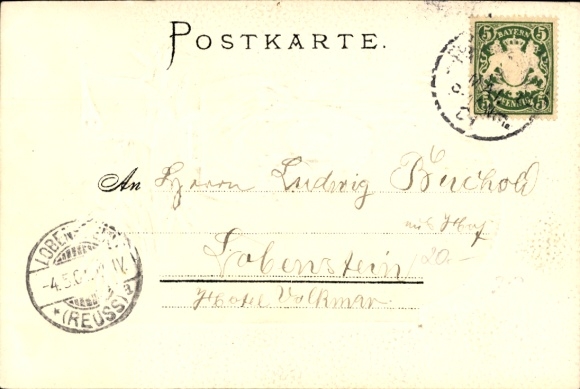 POSTKARTE.
5 BAYERN 5
5 PFENNIG 5
An Herrn Ludwig Buchold
Lobenstein
20.-
Hotel Volkmar
LOBENSTEIN
-4.5.0 IV.
* (REUSS) a